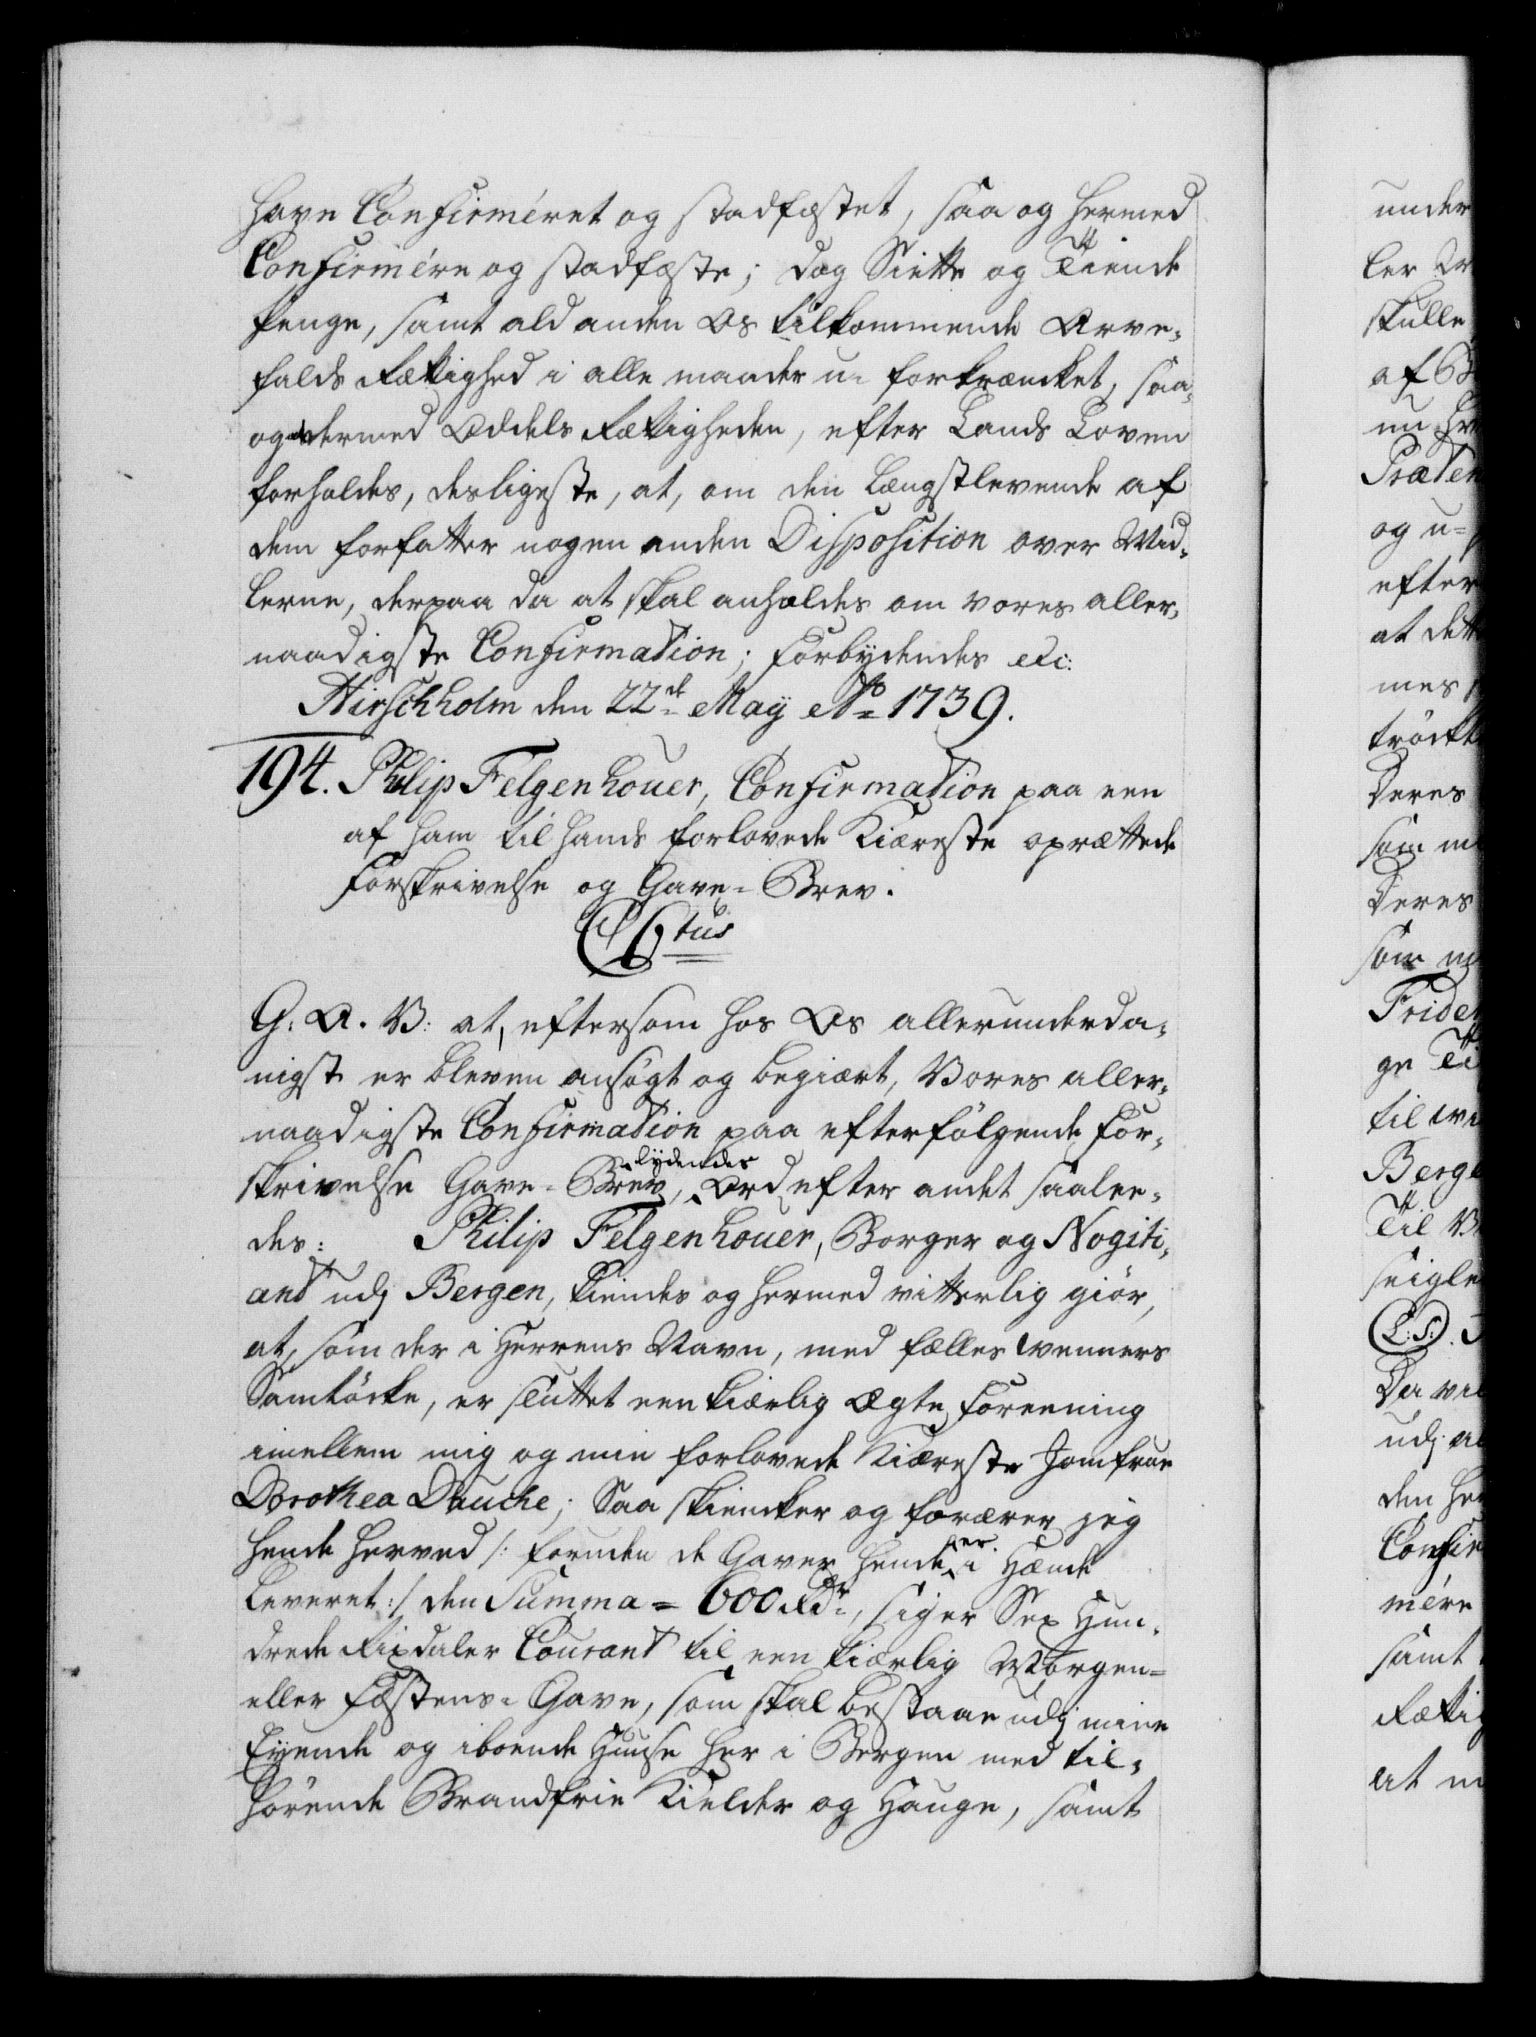 have Confirmeret og stadfæstet, saa og hermed
Confirmére og stadfæste; dog Siette og Tiende
Penge, samt ald anden Os tilkommende Arve-
falds Rettighed i alle maader u-forkrencket, saa
og dermed Oddels Rettigheden, efter Lands Loven
forholdes, desligeste, at, om den Længstlevende af
dem forfatter nogen anden Disposition over Mid-
lerne, derpaa da at skal anholdes om vores aller-
naadigste Confirmation; Forbydendes etc:
Hirschholm den 22de May Ao 1739.
194. Philip Felgenhouer, Confirmation paa een
af ham til hands forlovede Kiæreste oprettede
Forskrivelse og Gave-Brev.
C 6tus
G: A. V: at, eftersom hos Os allerunderda-
nigst er bleven ansøgt og begiært, Vores aller-
naadigste Confirmation paa efterfølgende For-
skrivelse Gave-Brev, lydendes Ord efter andet saalee-
des: Philip Felgenhouer, Borger og Nogiti-
ant udj Bergen, kiendes og hermed vitterlig giør,
at, som der i Herrens Navn, med fælles Wenners
Samtöcke, er sluttet een kiærlig Ægte Foreening
imellem mig og min forlovede Kiæreste Jomfrue
Dorothea Dauche; Saa skiencker og forærer jeg
hende herved /: foruden de Gaver hende er i Hænde
leveret :/ den Summa = 600 Rdr, siger Sex Hun-
drede Rixdaler Courant til een kiærlig Morgen-
eller Fæstens-Gave, som skal bestaae udj mine
Eyende og iboende Huuse her i Bergen med til-
hørende Brandfrie Kielder og Hauge, samt
under
skulle
af B
efter
at dett
mes
Deres
som m
Deres
som m
Frider
ge Ti
Berge
Til V
L:S:
udj al
den her
Confir
mére
samt
Rettig
at m